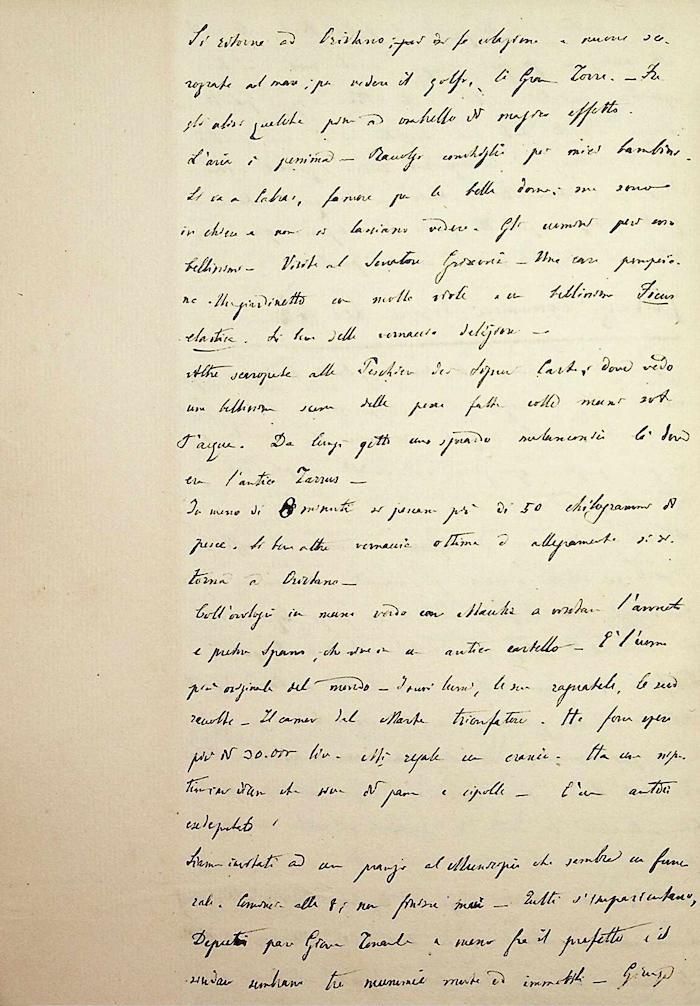 Si ritorna ad Oristano; per fa colazione e nuove sca-
rozzate al mare; per vedere il golfo, la Gran Torre. — Fra
gli altri qualche pino ad ombrello di magico effetto.
L'aria è pessima — Raccolgo conchiglie per miei bambini.
Si va a Cabras, famosa per le belle donne; ma sono
in chiesa e non si lasciano vedere. Gli uomini però sono
bellissimi — Visita al Senatore — Una casa pompeia-
na. Un giardinetto con molte viole e un bellissimo Ficus
elastica. Si beve della vernaccia deliziosa —
Altre scarrozzate alle Peschiere del Signor Carta, dove vedo
una bellissima scena della pesca fatta colle mani sott'
acqua. Da lungi getto uno sguardo malinconico là dove
era l'antica Tarros —
In meno di 8 minuti si pescano più di 50 chilogrammi di
pesce. Si beve altra vernaccia ottima e allegramente si ri-
torna a Oristano —
Coll'orologio in mano vado con a visitare l'avvocato
e Spano, che vive in un antico castello — È l'uomo
più originale del mondo — I suoi lumi, le sue ragnatele, le sue
raccolte — Il cameo del Marte trionfatore. Ha forse speso
più di 30.000 lire. Mi regala un cranio. Ha un
che vive di pane e cipolle — È un antico
exdeputato!
Siamo invitati ad un pranzo al Municipio che sembra un fune-
rale. Comincia alle 8; non finisce mai — Tutti s'impazientano,
Depretis pare Giove Tonante e meno fra il prefetto e il
sindaco sembrano tre mummie morte ed immobili —